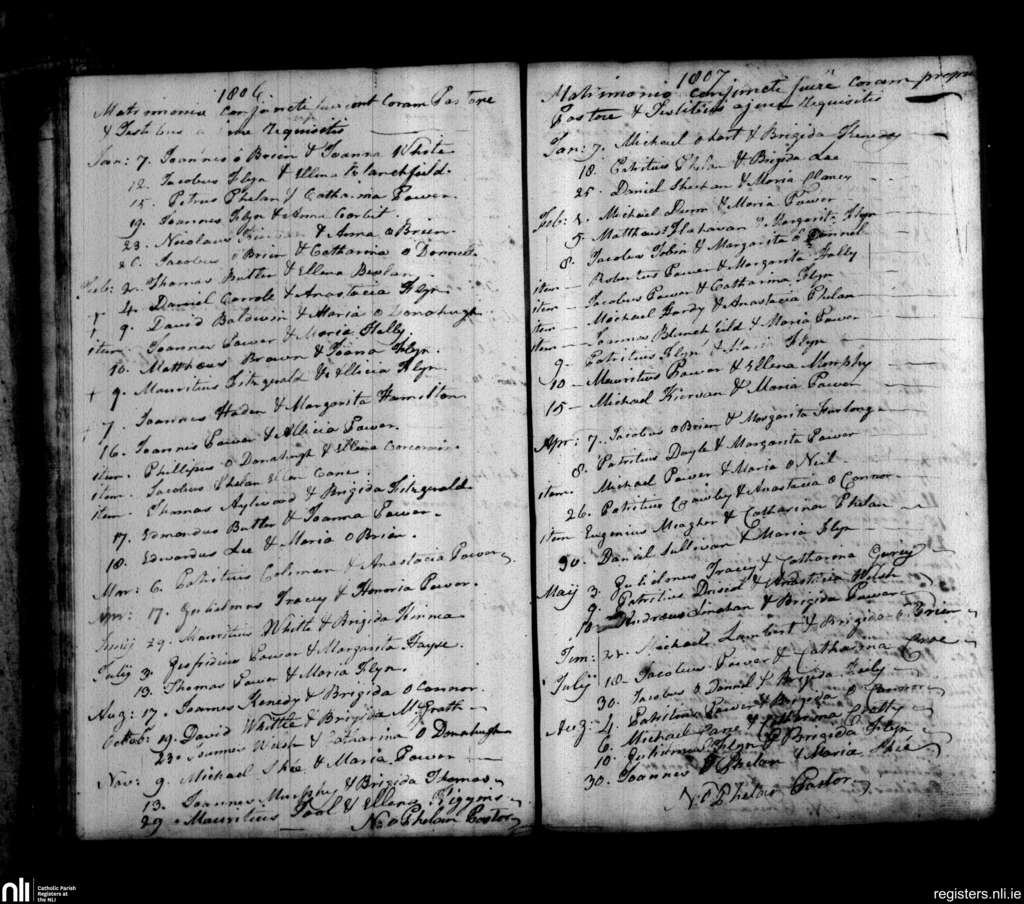 1806
Matrimonio conjuncti fuerunt Coram Pastore
& Testibus requisitis
Jan: 7. Joannes ó Brien & Joanna White
12. Jacobus Flyn & Ellena Blanchfield.
15. Petrus Phelan & Catharina Power.
19. Joannes Flyn & Anna Corbit.
23. Nicolaus & Anna o Brien.
26. Jacobus ó Brien & Catharina o Donnell.
Feb: 2. Thomas Butler & Ellena
4. Daniel Carrole & Anastacia Flyn.
9. David Baldwin & Maria o Donahugh
item Joannes Power & Maria Hally.
10. Matthaus Brown & Joana Flyn.
9. Mauritius Fitzgerald & Allicia Flyn
7. Joannes Haden & Margarita Hamilton
16. Joannes Power & Allicia Power.
item. Phillipus o Donahugh & Ellena Corcoran.
item. Jacobus Phelan & Cane.
item Thomas Aylward & Brigida Fitzgerald.
17. Edmandus Butler & Joanna Power.
18. Edwardus Lee & Maria o Brien.
Mar: 6. Patritius Coleman & Anastacia Power
Apr: 17. Gulielmus Tracey & Honoria Power.
Junij 29. Mauritius White & Brigida Kinna
Julij 3. Geofridius Power & Margarita Hayse.
13. Thomas Power & Maria Flyn.
Aug: 17. Joannes Kenedy & Brigida o Connor.
Octob: 19. David Whittle & Brigida McGrath
23. Joannes Walsh & Catharina o Donahugh
Nov: 9. Michael Shée & Maria Power
13. Joannes Murphy & Brigida Thomas
29. Mauritius Pool & Ellena Higgins
Ns. o Phelan Pastor
1807
Matrimonio conjuncti fuere coram proprio
Pastore & Testibus requisitis
Jan: 7. Michael o Hart & Brigida
18. Patritius Phelan & Brigida Lee
25. Daniel Sheehan & Maria Clancy
Feb: Michael Dunn & Maria Power
5. Matthaus Flahavan & Margarita Flyn
8. Jacobus Tobin & Margarita o Donnel
item Robertus Power & Margarita Hally
item Jacobus Power & Catharina Flyn
item Michael Hardy & Anastacia Phelan
item Joannes Blanchfield & Maria Power
9. Patritius Flyn & Maria Flyn
10 Mauritius Power & Ellena Murphy
15 Michael Kirwan & Maria Power
Apr: 7. Jacobus o Brien & Margarita Furlong
8. Patritius Doyle & Margarita Power
item. Michael Power & Maria o Neil
26. Patritius Crawley & Anastacia o Connor
item Eugenius Meagher & Catharina Phelan
30. Daniel Sullivan & Maria Flyn
Maij 3. Gulielmus Tracey & Catharina
9. Patritius Driscol & Anastacia Welsh
10 Andreas Linahan & Brigida Power
Jun: 21. Michael Lambert & Brigida o Brien
Julij 18. Jacobus Power & Catharina
30. Jacobus o Donnel & Brigida
Aug: 4. Patritius Power & Brigida o
6. Michael Cane & Catharina
10. Gulielmus Flyn & Brigida Flyn
30. Joannes o Phelan & Maria Shée
N. o Phelan Pastor
nli
Catholic Parish
Registers at
the NLI
registers.nli.ie